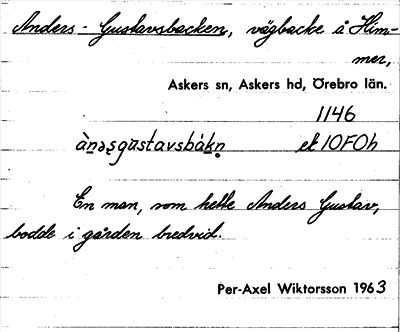 Anders-Gustavsbacken, vägbacke å Him-
mer,
Askers sn, Askers hd, Örebro län.
1146
ànəșgustavsbàkn̥ ek 10F0h
En man, som hette Anders Gustav,
bodde i gården bredvid.
Per-Axel Wiktorsson 1963